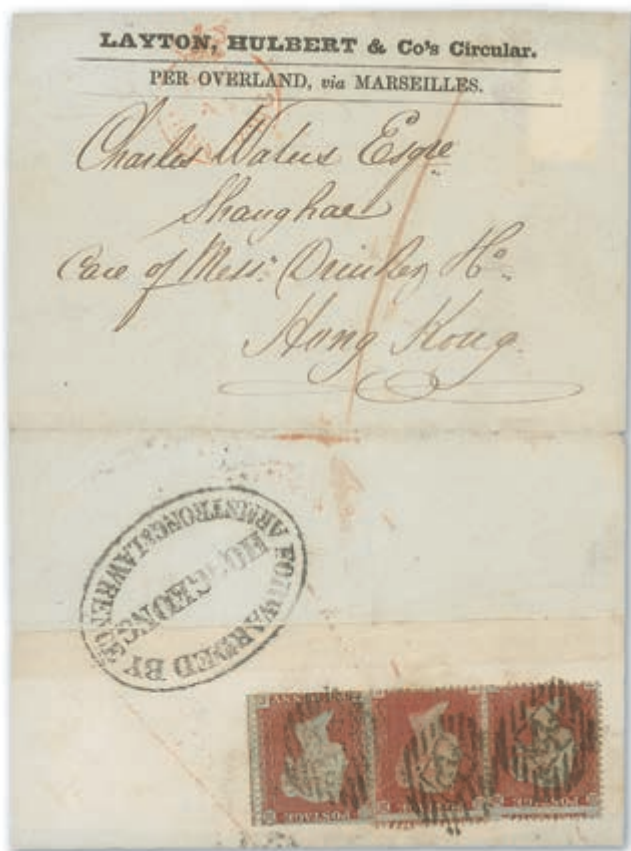 LAYTON, HULBERT & Co's Circular.
PER OVERLAND, via MARSEILLES.
Charles Waters Esqre
Shanghae
Care of Messrs Drinker & Co.
Hong Kong.
FORWARDED BY
ARMSTRONG & LAWRENCE
HONG KONG
POSTAGE
POSTAGE
POSTAGE